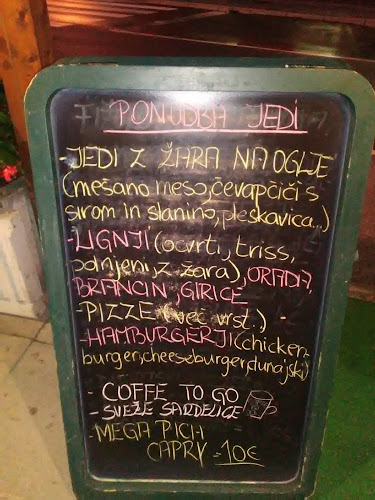 PONUDBA JEDI
-JEDI Z ŽARA NA OGLJE
(mešano meso, čevapčiči s
sirom in slanino, pleskavica...)
-LIGNJI (ocvrti, triss,
polnjeni, z žara), ORADA,
BRANCIN, GIRICE
-PIZZE (več vrst.)
-HAMBURGERJI (chicken-
burger, cheeseburger, dunajski)
- COFFE TO GO
- SVEŽE SARDELICE
-MEGA PICA
CAPRY = 10€